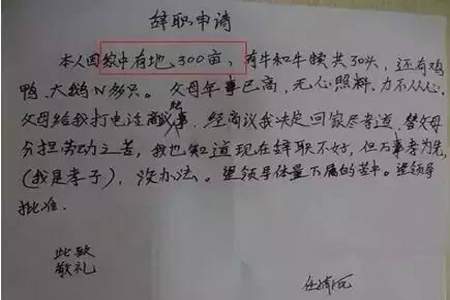 辞职申请
本人因家中有地300亩，有牛和牛犊共30头，还有鸡
鸭、大鹅N多只。父母年事已高，无人照料，力不从心。
父母给我打电话商议事，经商议我决定回家尽孝道，替父母
分担劳动之苦，我也知道现在辞职不好，但万事孝为先，
（我是孝子），没办法。望领导体量下属的苦中。望领导
批准。
此致
敬礼